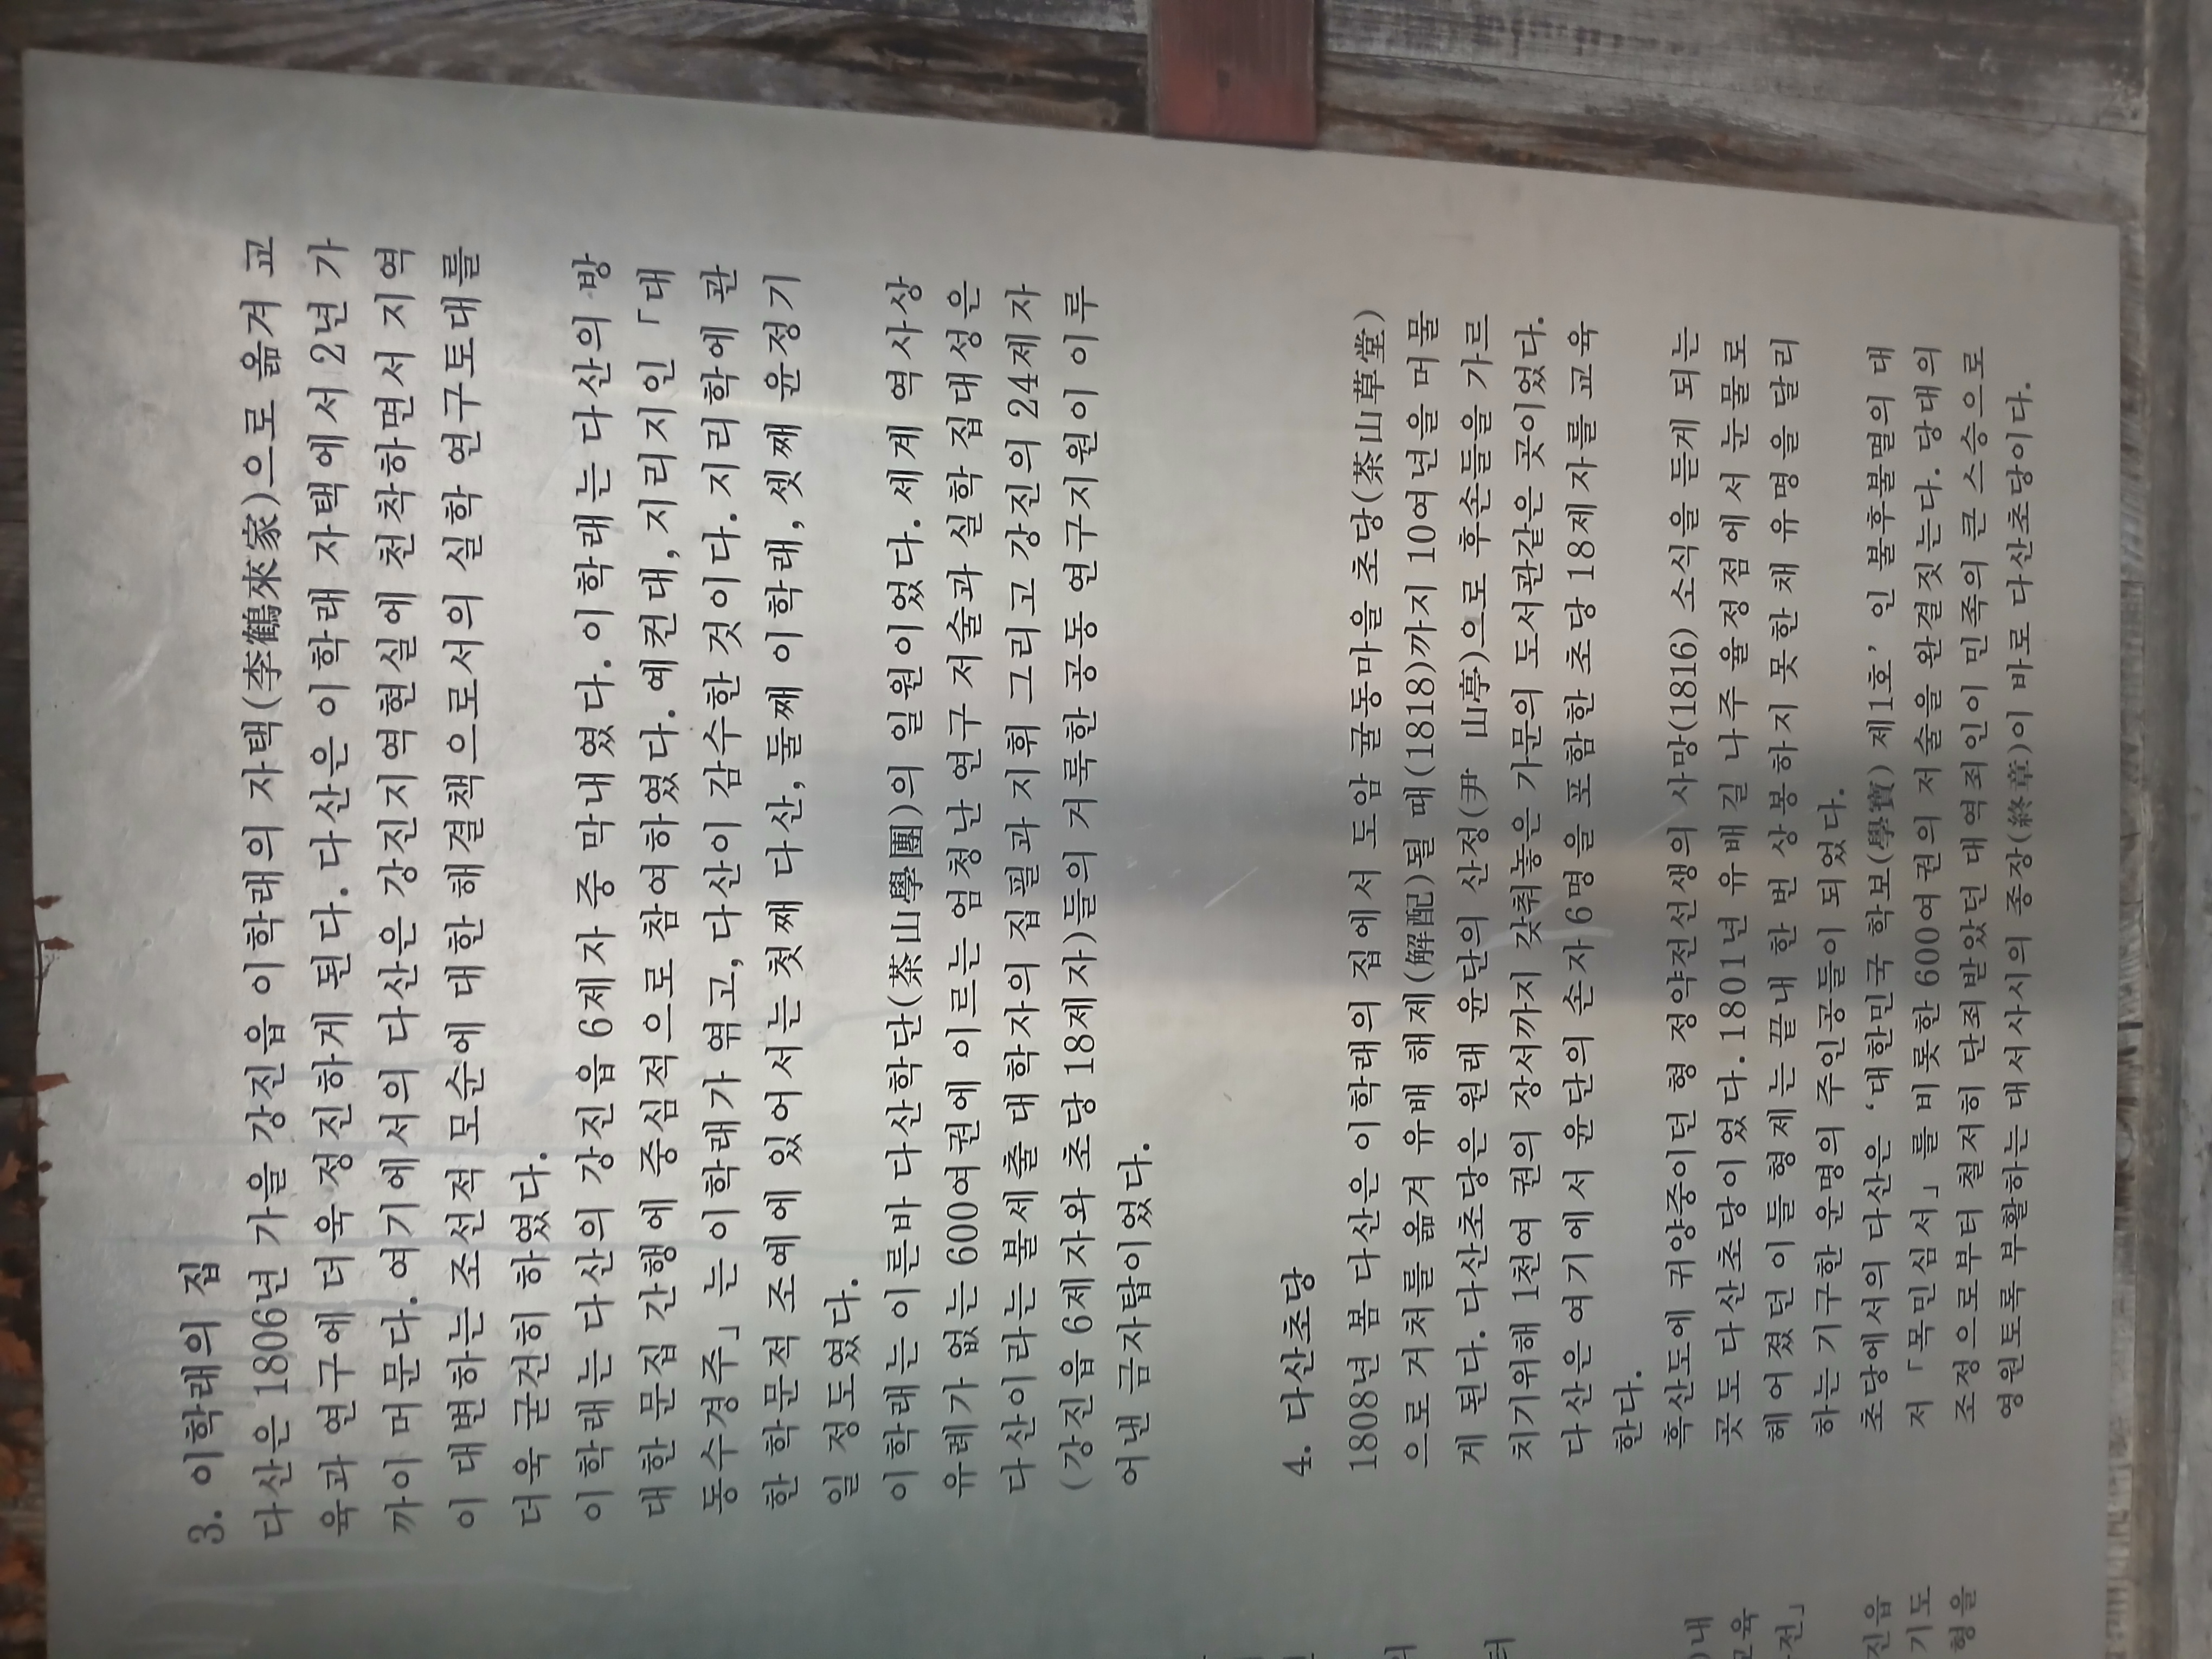 3. 이학래의 집
다산은 1806년 가을 강진읍 이학래의 자택(李鶴來家)으로 옮겨 교
육과 연구에 더욱 정진하게 된다. 다산은 이학래 자택에서 2년 가
까이 머문다. 여기에서의 다산은 강진지역현실에 천착하면서 지역
이 대변하는 조선적 모순에 대한 해결책으로서의 실학 연구토대를
더욱 굳건히 하였다.
이학래는 다산의 강진읍 6제자 중 막내였다. 이학래는 다산의 방
대한 문집 간행에 중심적으로 참여하였다. 예컨대, 지리지인 「대
동수경주」는 이학래가 엮고, 다산이 감수한 것이다. 지리학에 관
한 학문적 조예에 있어서는 첫째 다산, 둘째 이학래, 셋째 윤정기
일 정도였다.
이학래는 이른바 다산학단(茶山學團)의 일원이었다. 세계 역사상
유례가 없는 600여권에 이르는 엄청난 연구 저술과 실학 집대성은
다산이라는 불세출 대학자의 집필과 지휘 그리고 강진의 24제자
(강진읍 6제자와 초당 18제자)들의 거룩한 공동 연구지원이 이루
어낸 금자탑이었다.
4. 다산초당
1808년 봄 다산은 이학래의 집에서 도암 귤동마을 초당(茶山草堂)
으로 거처를 옮겨 유배 해제(解配)될 때(1818)까지 10여년을 머물
게 된다. 다산초당은 원래 윤단의 산정(尹 山亭)으로 후손들을 가르
치기위해 1천여 권의 장서까지 갖춰놓은 가문의 도서관같은 곳이었다.
다산은 여기에서 윤단의 손자 6명을 포함한 초당 18제자를 교육
한다.
흑산도에 귀양중이던 형 정약전선생의 사망(1816) 소식을 듣게 되는
곳도 다산초당이었다. 1801년 유배길 나주 율정점에서 눈물로
헤어졌던 이들 형제는 끝내 한 번 상봉하지 못한 채 유명을 달리
하는 기구한 운명의 주인공들이 되었다.
초당에서의 다산은 ‘대한민국 학보(學寶) 제1호’ 인 불후불멸의 대
저 「목민심서」를 비롯한 600여권의 저술을 완결짓는다. 당대의
조정으로부터 철저히 단죄받았던 대역죄인이 민족의 큰 스승으로
영원토록 부활하는 대서사시의 종장(終章)이 바로 다산초당이다.